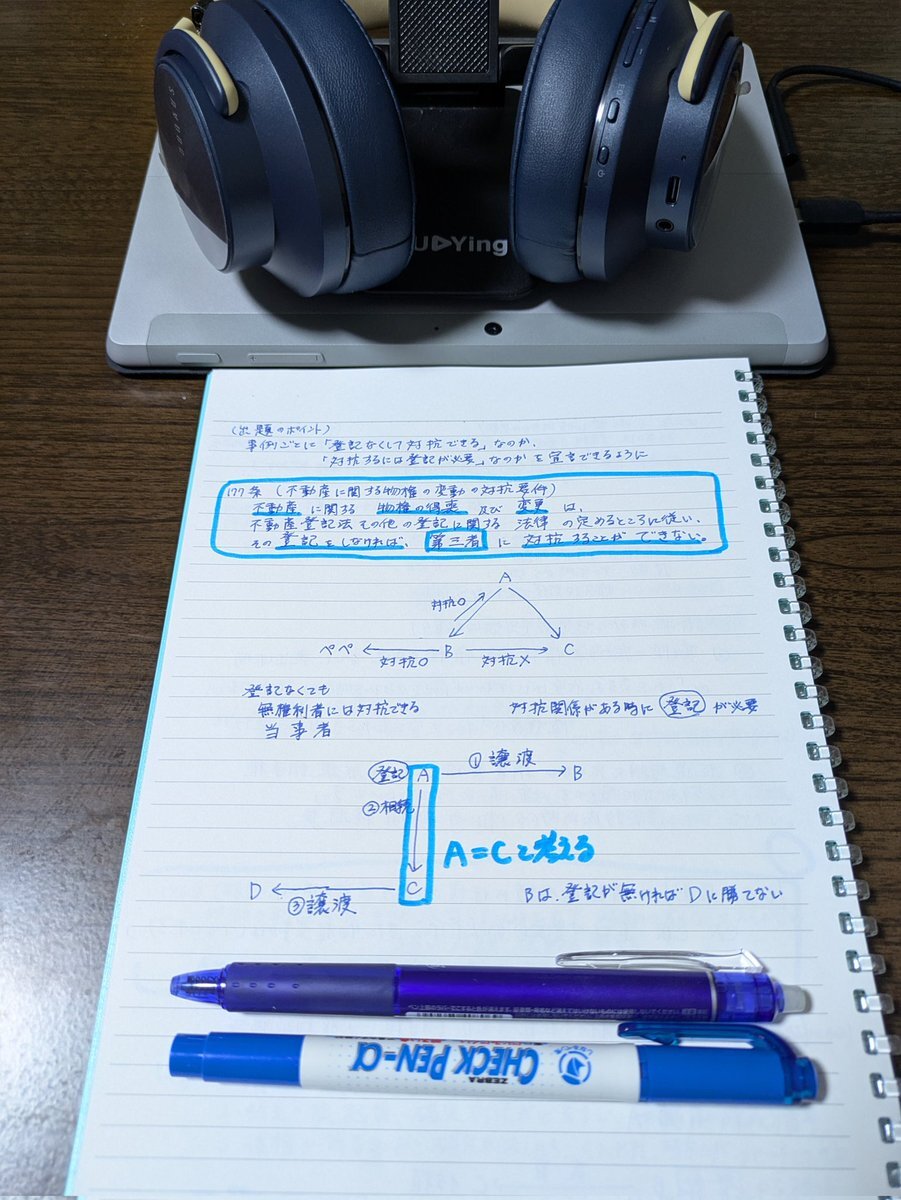 UDYing
(出題のポイント)
事例ごとに「登記なくして対抗できる」なのか、
「対抗するには登記が必要」なのかを宣言できるように
177条(不動産に関する物権の変動の対抗要件)
不動産に関する 物権の得喪 及び 変更は、
不動産登記法その他の登記に関する 法律の定めるところに従い、
その登記をしなければ、第三者に対抗することができない。
A
対抗○
ペペ B C
対抗○ 対抗×
登記なくても
無権利者には対抗できる 対抗関係がある時に登記が必要
当事者
①譲渡
登記 A B
②相続
A=Cと考える
D C
③譲渡 Bは、登記が無ければDに勝てない
ZEBRA
CHECK PEN-α